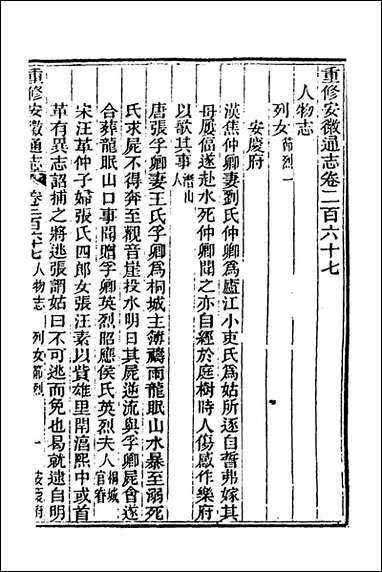 重修安徽通志卷二百六十七
人物志
列女 節烈一
安慶府
漢焦仲卿妻劉氏仲卿爲廬江小吏氏爲姑所逐自誓弗嫁其
母屢偪遂赴水死仲卿聞之亦自經於庭樹時人傷感作樂府
以歌其事 潛山人
唐張孚卿妻王氏孚卿爲桐城主簿禱雨龍眠山水暴至溺死
氏求屍不得奔至觀音崖投水明日其屍逆流與孚卿屍會遂
合葬龍眠山口事聞贈孚卿英烈昭應侯氏英烈夫人 桐城官眷
宋汪革仲子婦張氏四郎女張汪素以貲雄里閈湻熙中或首
革有異志詔捕之將逃張謂姑曰不可逃而免也曷就逮自明
重修安徽通志 卷二百六十七 人物志 列女 節烈 一 安慶府